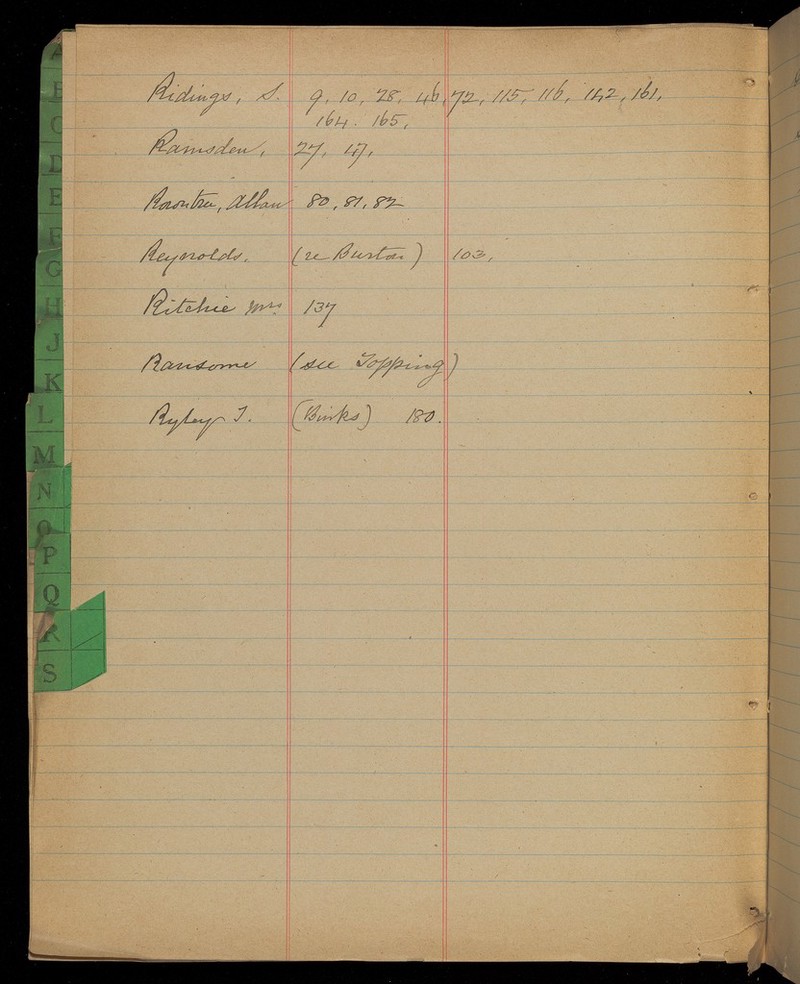 Ridings, S. 9, 10, 28, 46, 72, 115, 116, 142, 161,
164. 165,
Ramsden, 27, 47,
Rowntree, Allan 80, 81, 82
Reynolds. (re Burton) 103,
Ritchie Mrs. 137
Ransome (see Topping)
Ryley T. (Binks) 180.
A
B
C
D
E
F
G
H
J
K
L
M
N
O
P
Q
R
S